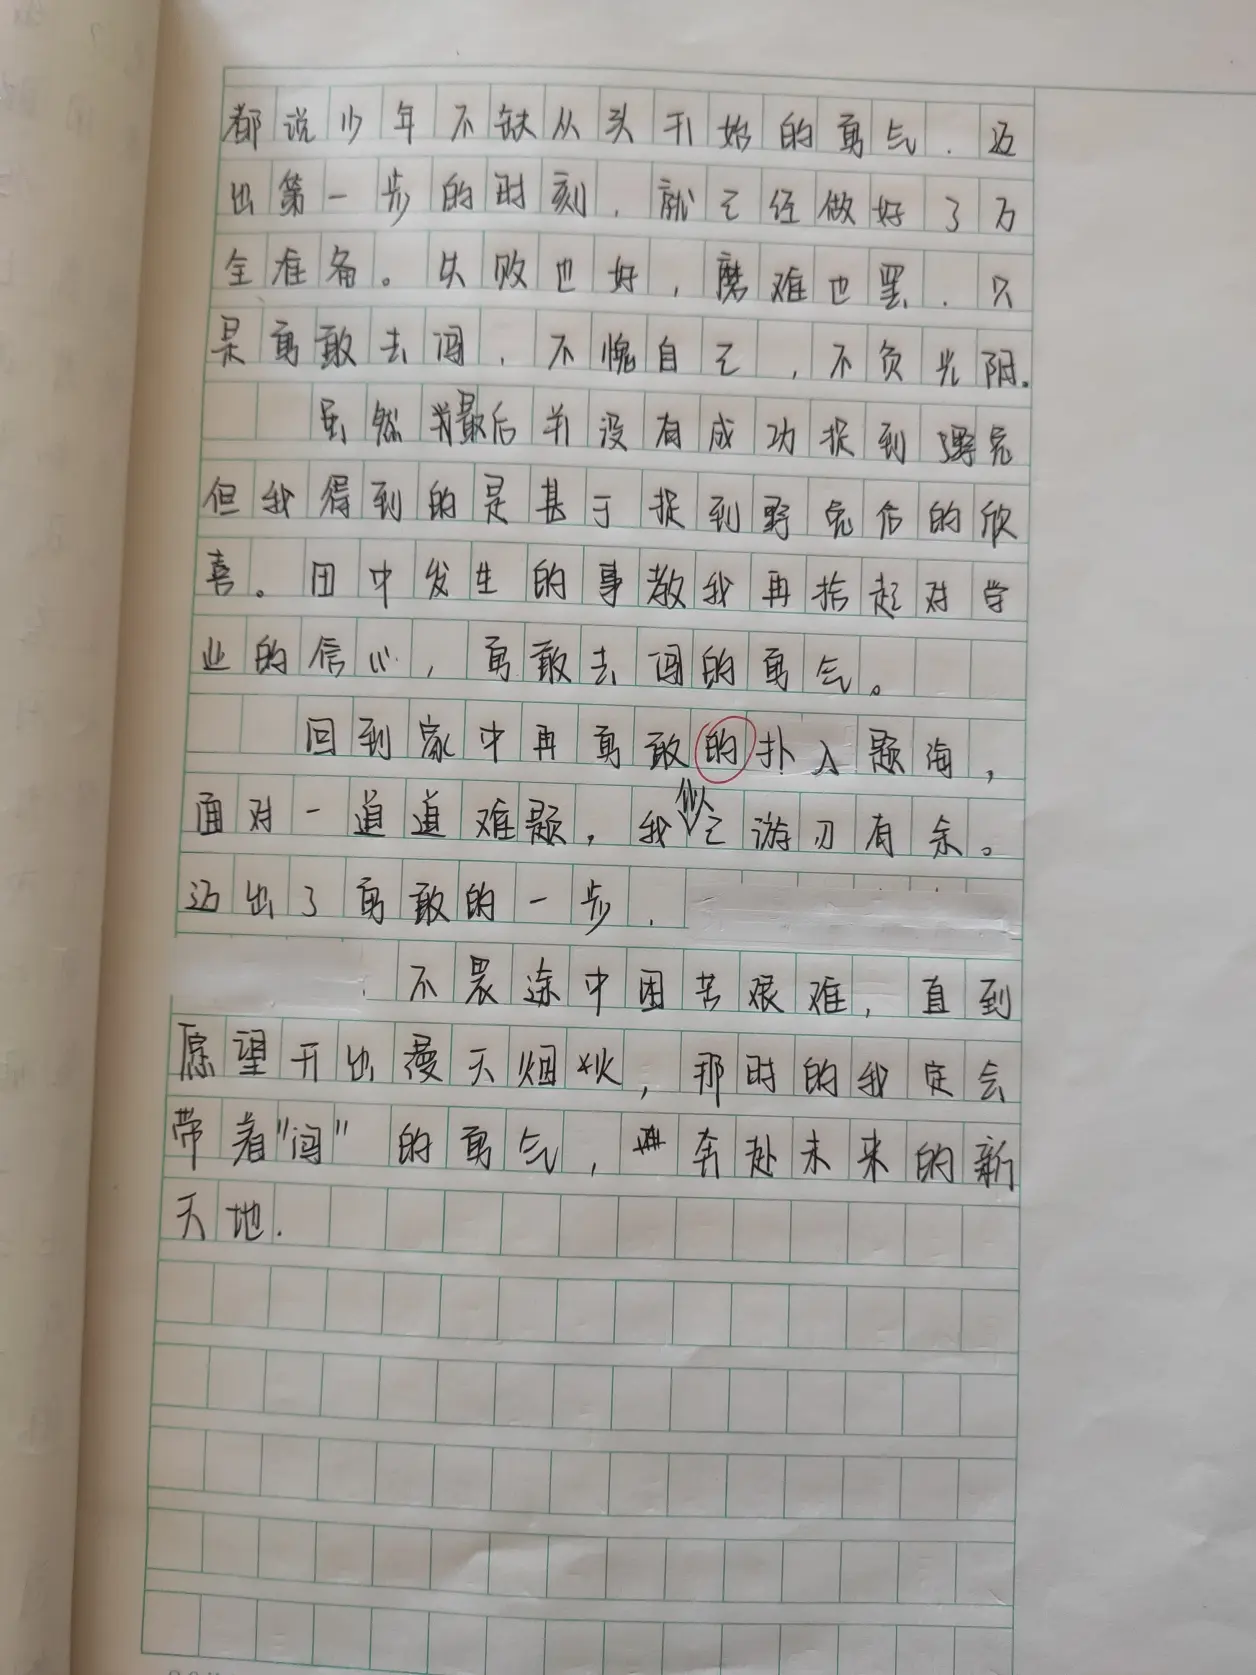 都说少年不缺从头开始的勇气.迈
出第一步的时刻,就已经做好了万
全准备。失败也好,磨难也罢.只
是勇敢去闯.不愧自己,不负光阴.
虽然最后并没有成功捉到野兔
但我得到的是甚于捉到野兔后的欣
喜。田中发生的事教我再拾起对学
业的信心,勇敢去闯的勇气。
回到家中再勇敢的扑入题海,
面对一道道难题,我似已游刃有余。
迈出了勇敢的一步.
不畏途中困苦艰难,直到
愿望开出漫天烟火,那时的我定会
带着"闯"的勇气,奔赴未来的新
天地.